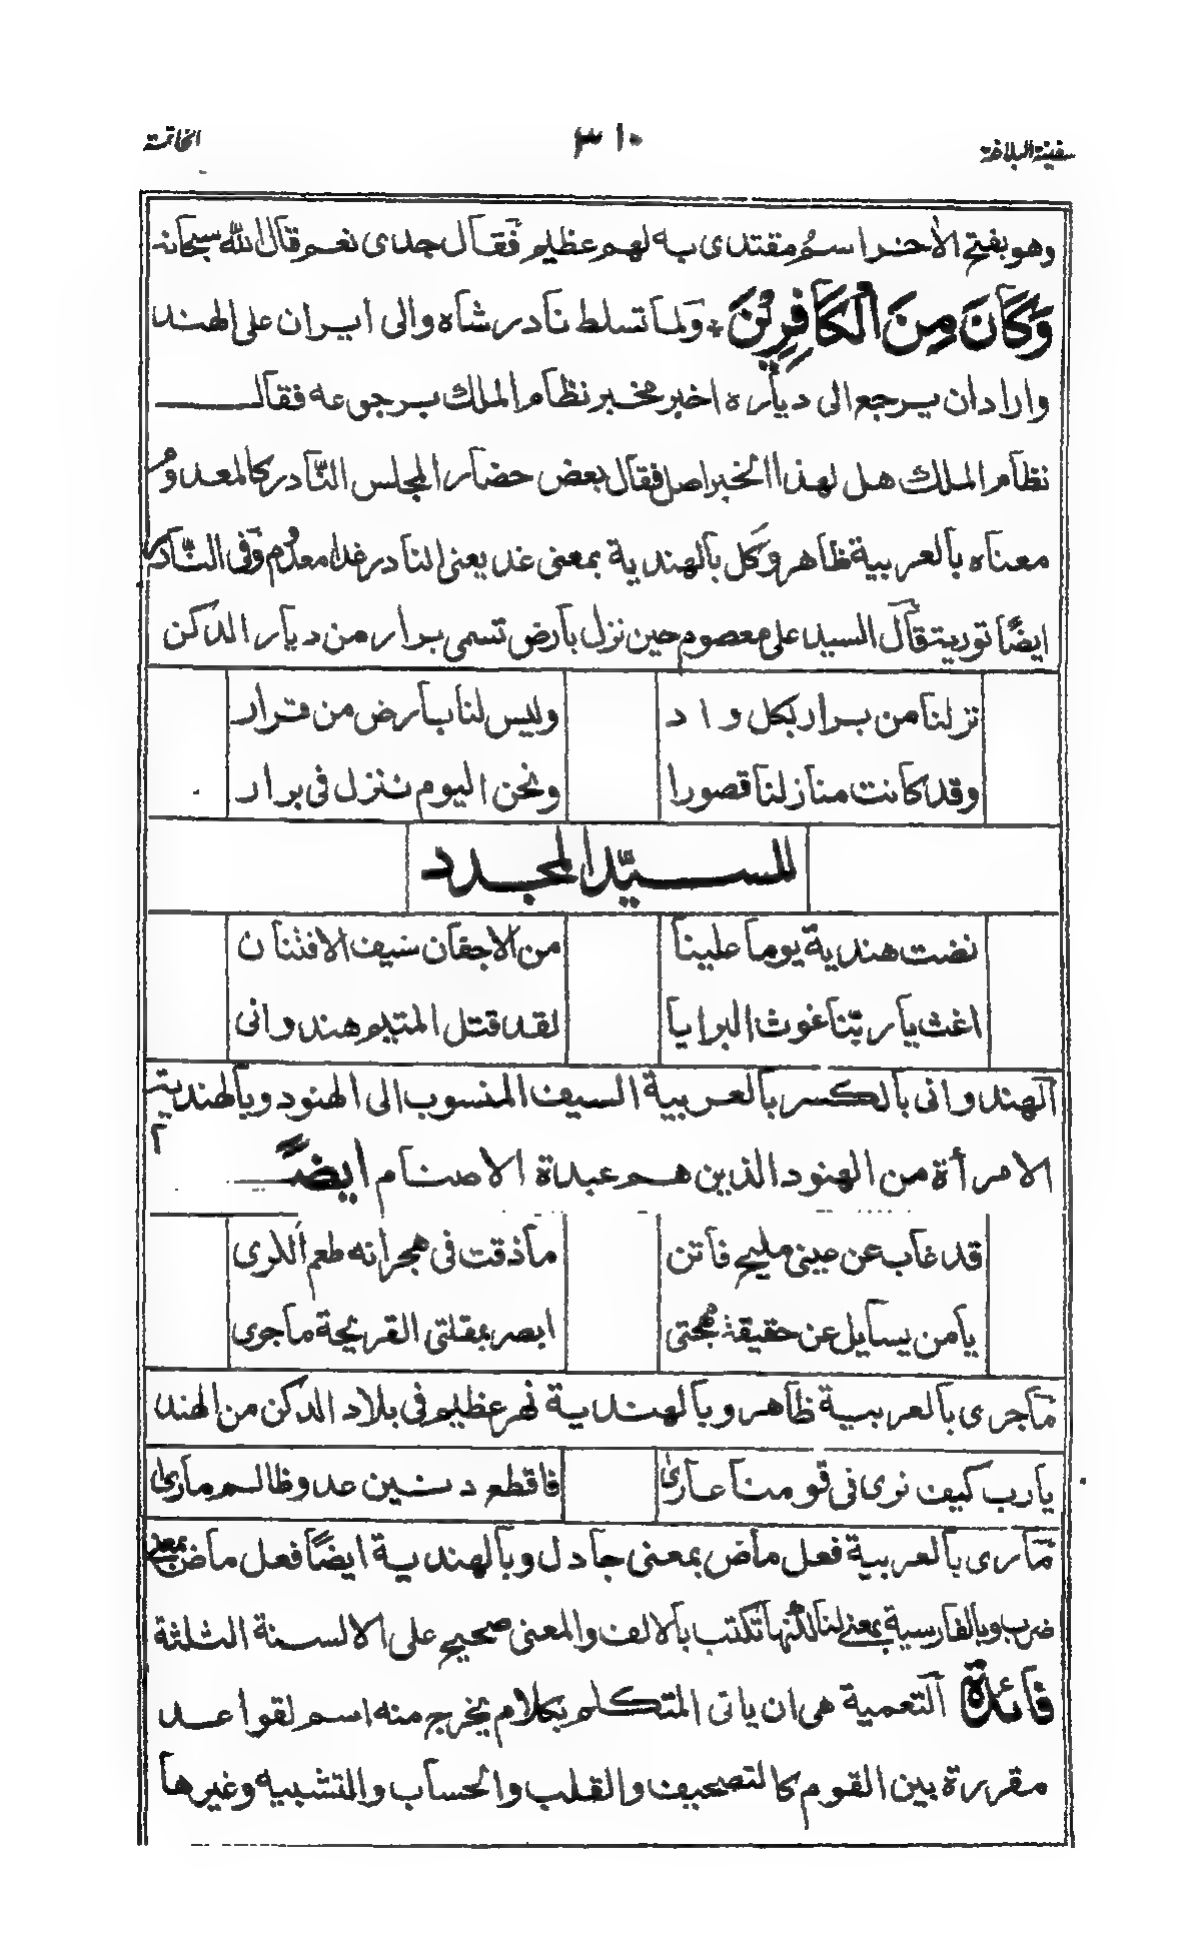 سفينة البلاغة ٣١٠ الخاتمة
وهو بفتح الآخر اسم مقتدى به لهم عظيم فقال جدى نعم قال الله سبحانه
وَكَانَ مِنَ الْكَافِرِيْنَ ٭ ولما تسلط نادر شاه والى ايران على الهند
واراد ان يرجع الى دياره اخبر مخبر نظام الملك برجوعه فقال
نظام الملك هل لهذا الخبر اصل فقال بعض حضار المجلس النّادر كالمعدوم
معناه بالعربية ظاهر وكل بالهندية بمعنى غد يعنى النادر غدا معدوم وفى النّادر
ايضًا تورية قال السيد على معصوم حين نزل بارض تسمى برار من ديار الدكن
نزلنا من برار بكل واد وليس لنا بارض من قرار
وقد كانت منازلنا قصورا ونحن اليوم ننزل فى برار
للسيّد المجدد
نضت هندية يوما علينا من الاجفان سيف الافتنان
اغث يا ربّنا غوث البرايا لقد قتل المتيم هندوانى
الهندوانى بالكسر بالعربية السيف المنسوب الى الهنود وبالهندية
الامرأة من الهنود الذين هم عبدة الاصنام ايضًا
قد غاب عن عينى مليح فاتن ما ذقت فى هجرانه طعم الكرى
يا من يسايل عن حقيقة مهجتى ابصر بمقلتى القريحة ماجرى
ماجرى بالعربية ظاهر وبالهندية نهر عظيم فى بلاد الدكن من الهند
يا رب كيف نرى فى قومنا عارىٰ فاقطع د سنين عدو ظالم مارىٰ
مارى بالعربية فعل ماض بمعنى جادل وبالهندية ايضًا فعل ماض بمعنى
ضرب وبالفارسية بمعنى لنا لكنها تكتب بالالف والمعنى صحيح على الالسنة الثلثة
فائدة التعمية هى ان ياتى المتكلم بكلام يخرج منه اسم لقواعد
مقررة بين القوم كالتصحيف والقلب والحساب والتشبيه وغيرها